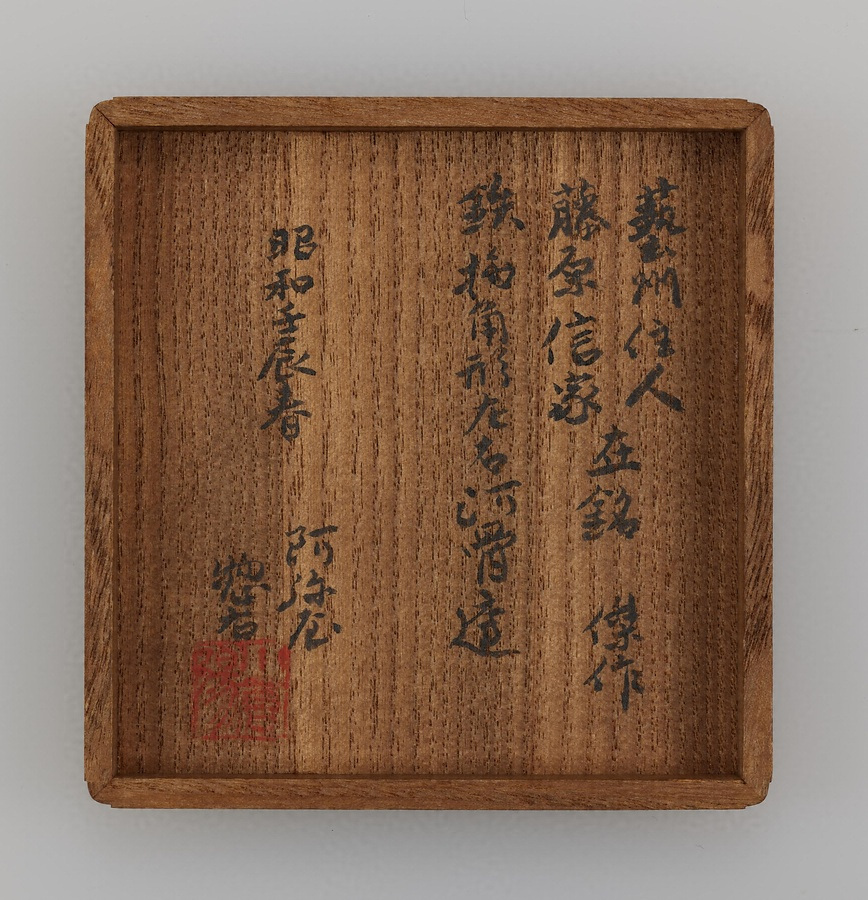 藝州住人
藤原信家
在銘 傑作
鉄 角形左右河骨透
昭和壬辰春
阿弥古
惣右